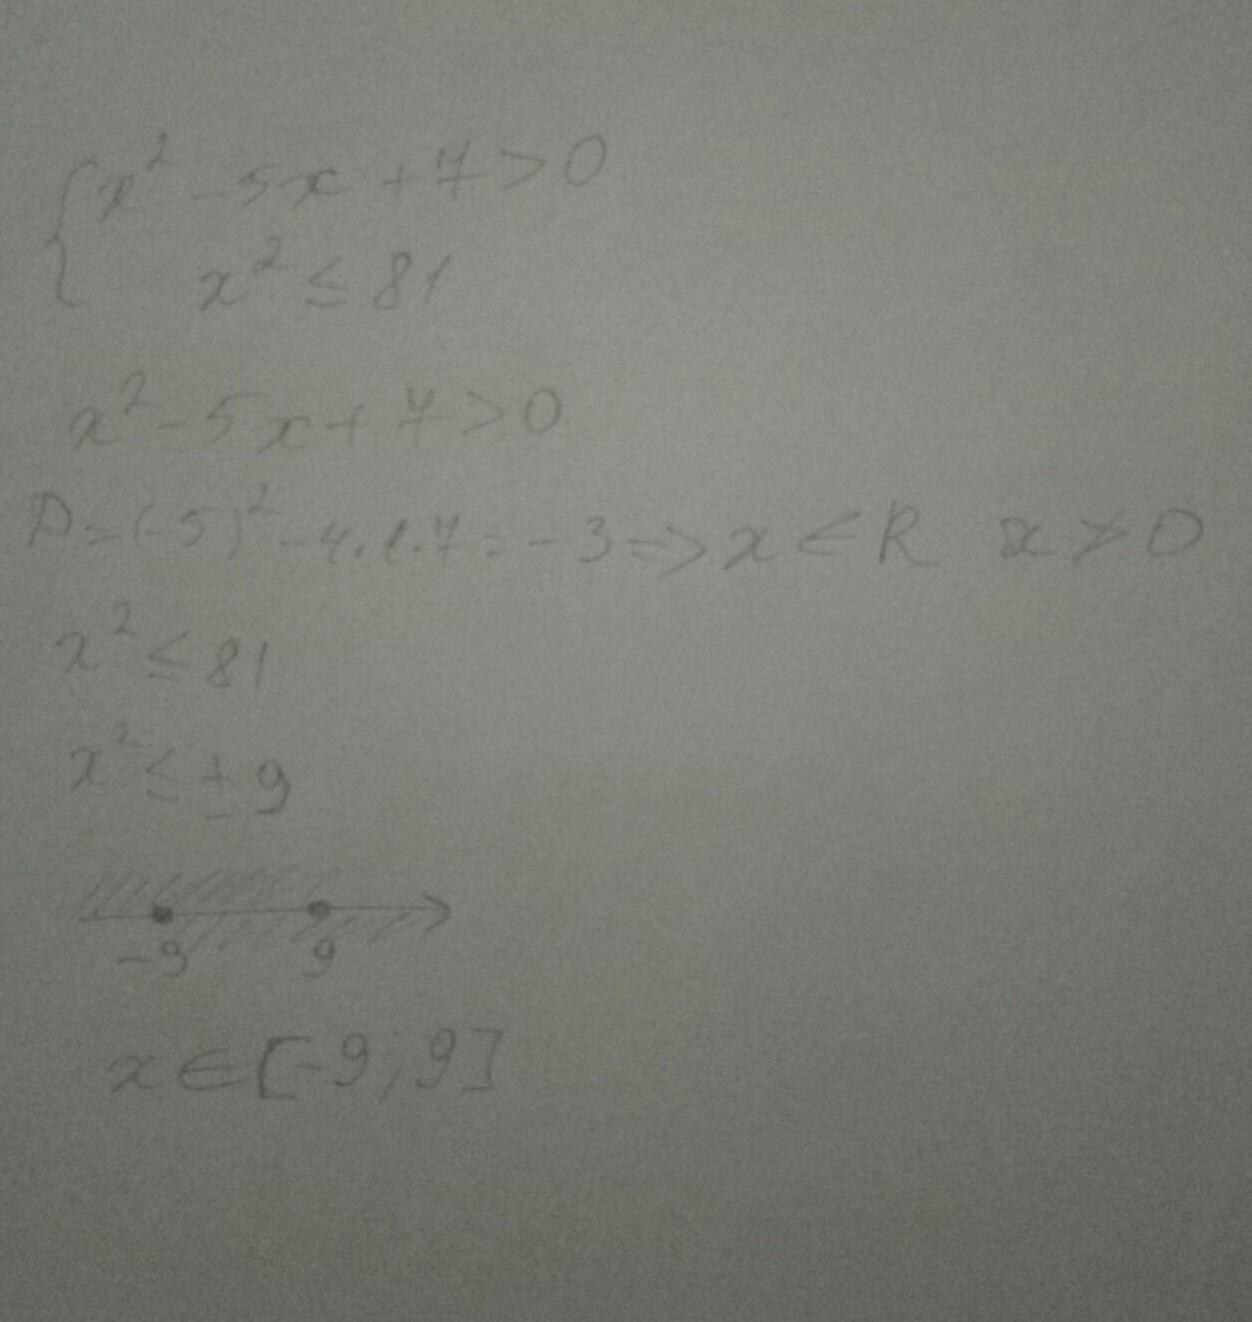 { x² - 5x + 7 > 0
x² ≤ 81
x² - 5x + 7 > 0
D = (-5)² - 4.1.7 = -3 => x ∈ R x > 0
x² ≤ 81
x² ≤ ± 9
-9 9
x ∈ [-9; 9]